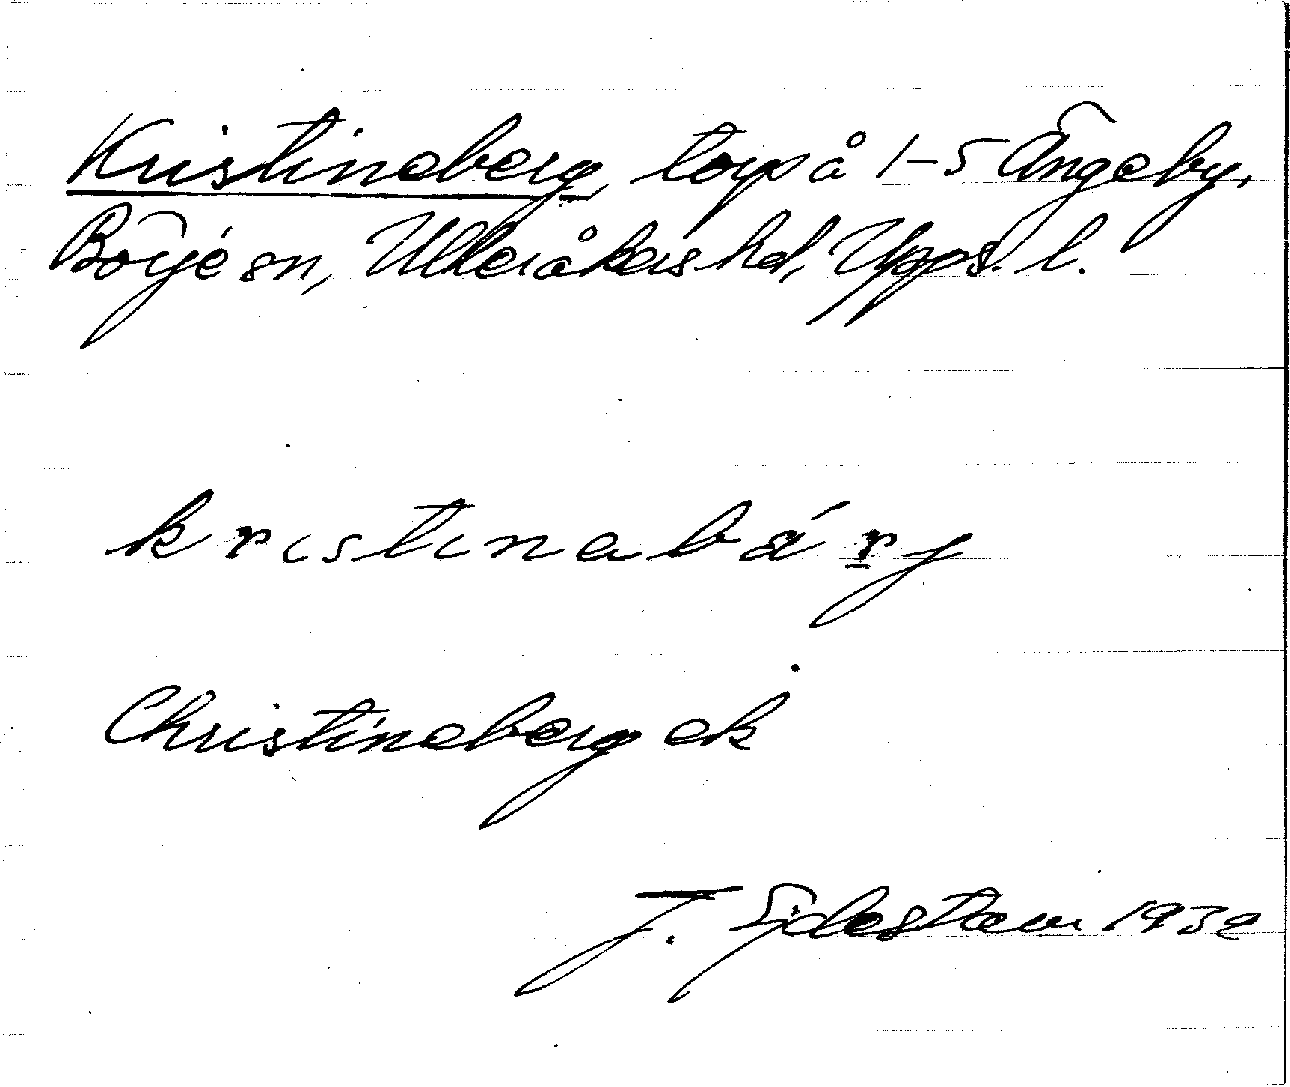 Kristineberg, torp å 1-5 Ängeby,
Börje sn, Ulleråkers hd, Upps. l.
kristinabärg
Christineberg ek
J. Sjdestam 1932